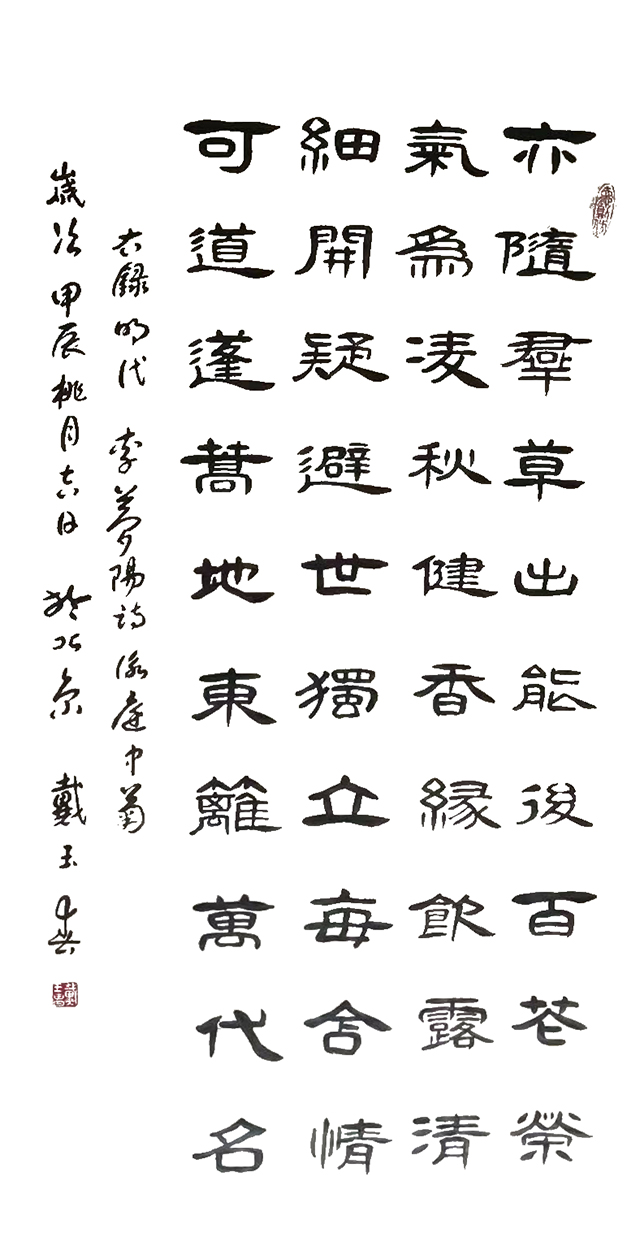 亦隨羣草出能後百花榮
氣為凌秋健香緣飲露清
細開疑避世獨立每含情
可道蓬蒿地東籬萬代名
右錄明代 李夢陽詩 詠庭中菊
歲次甲辰桃月吉日 於北京 戴玉春